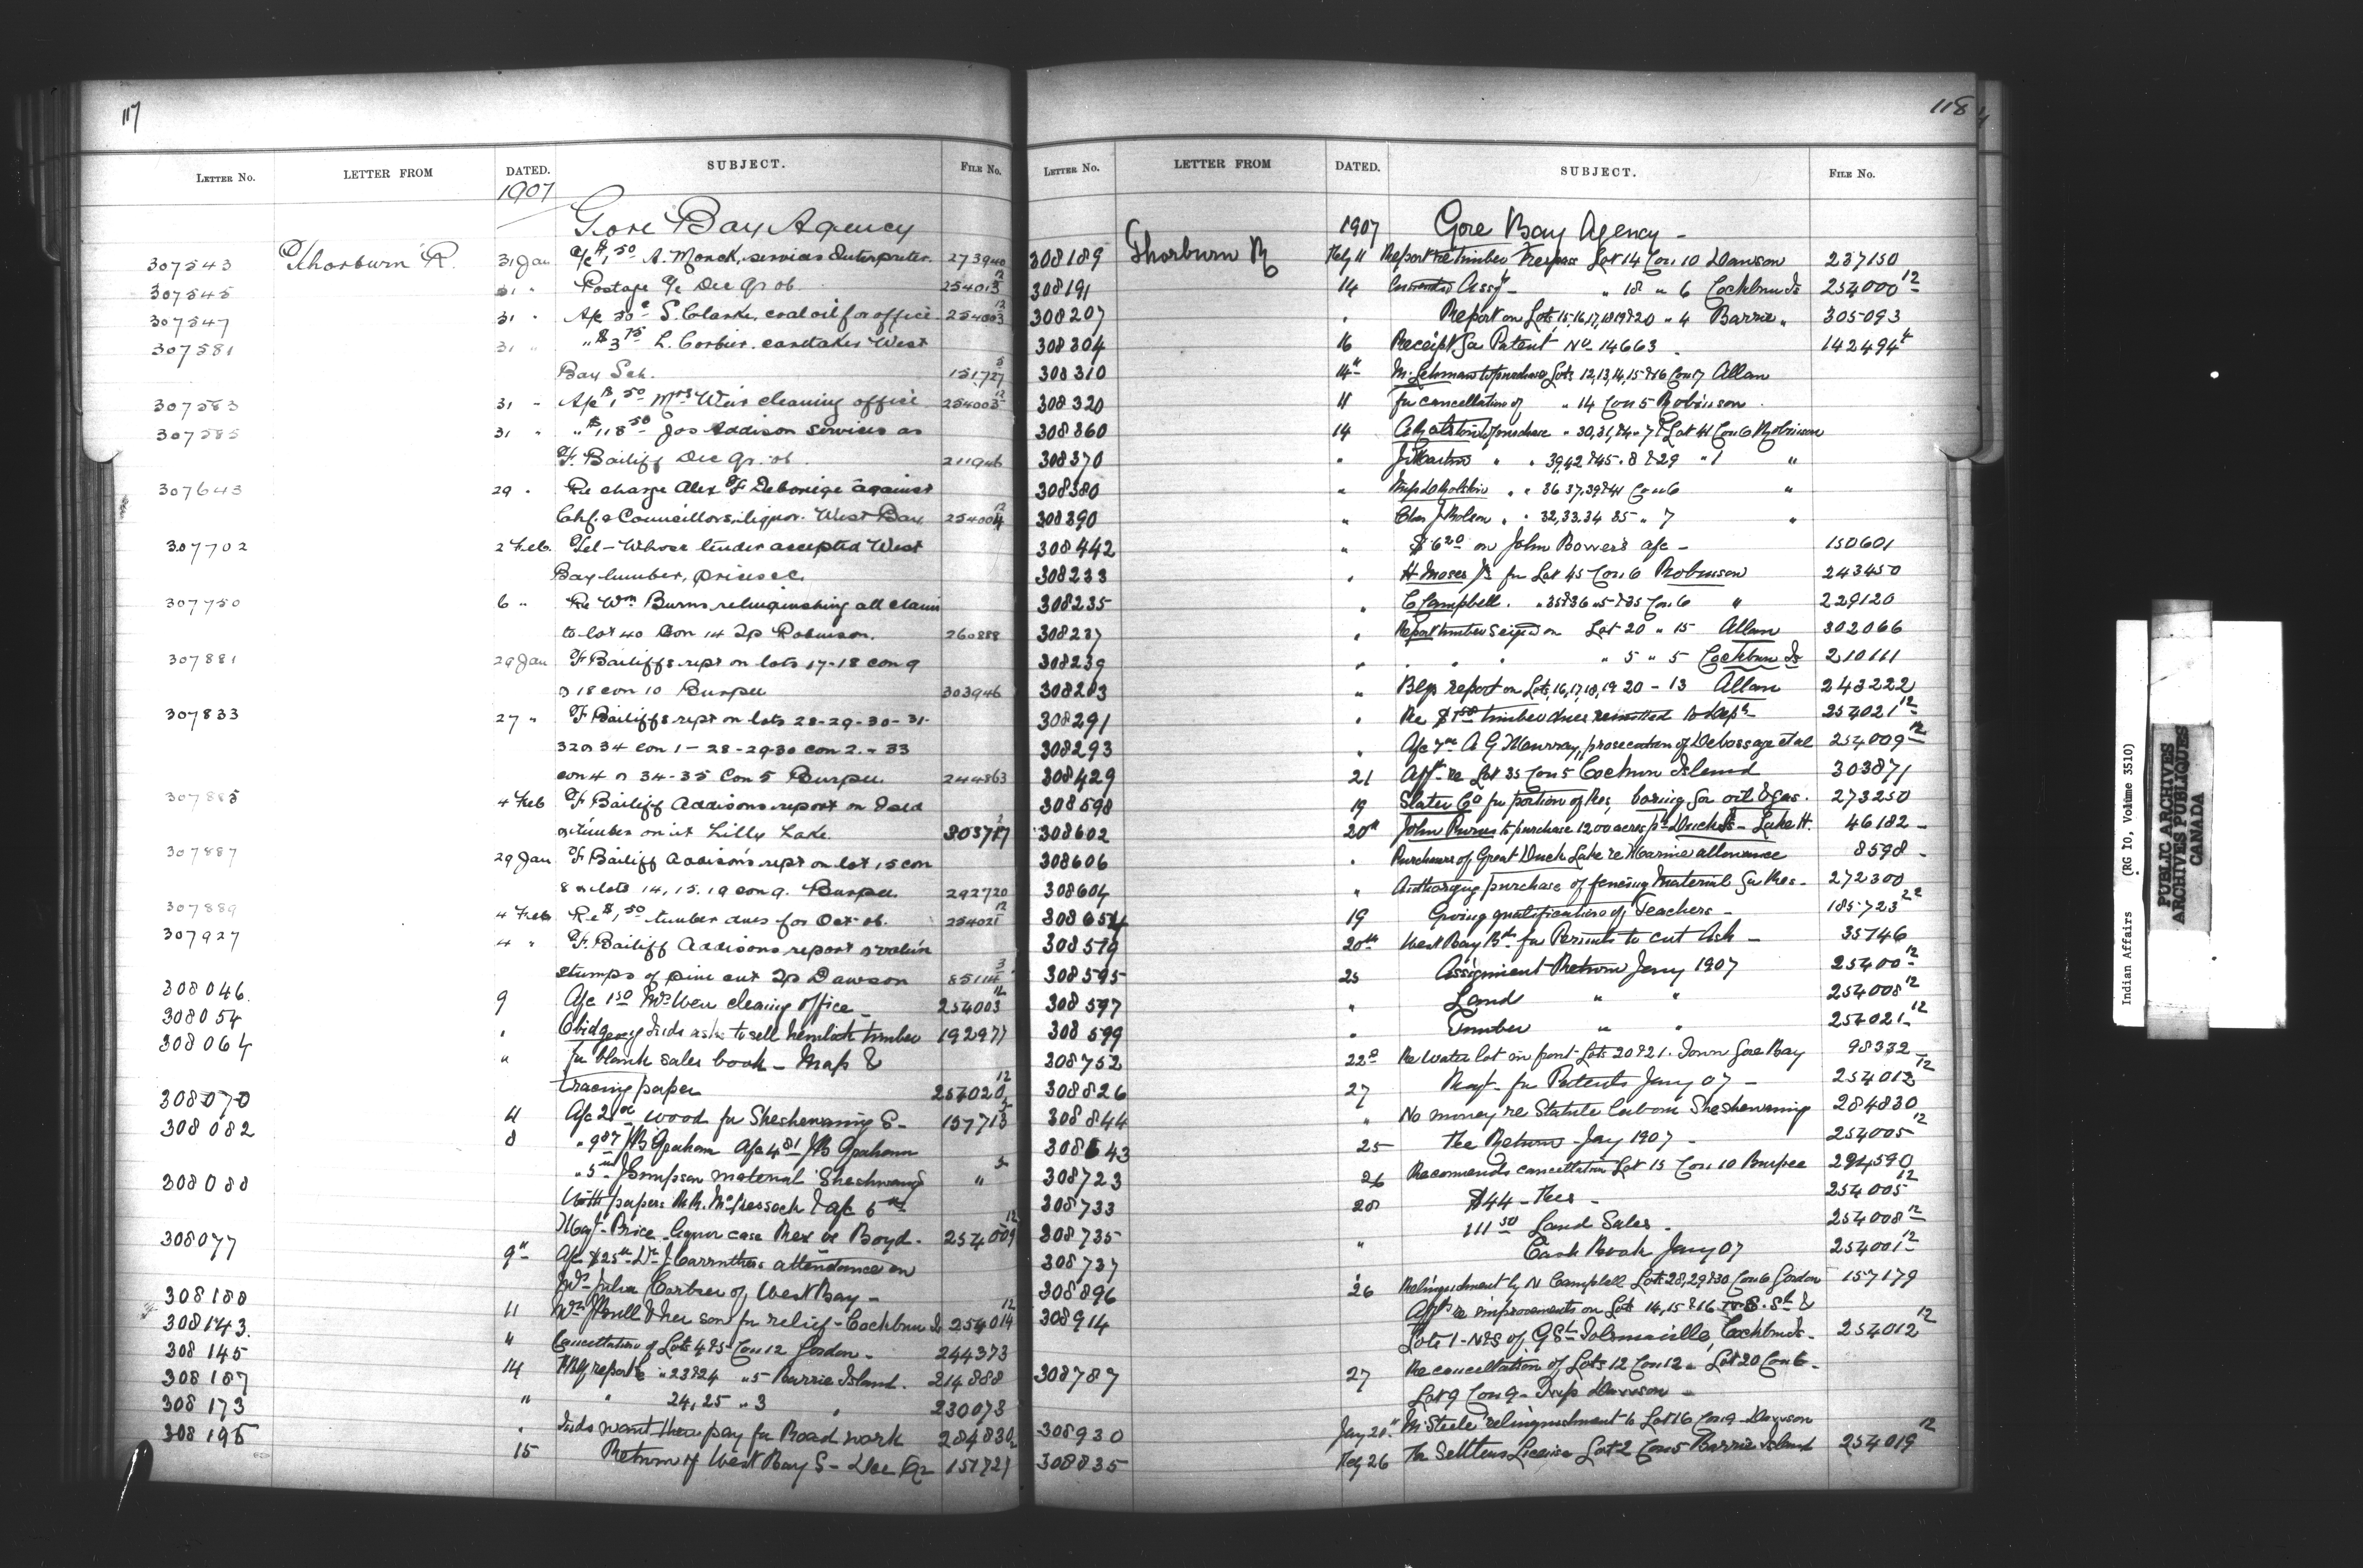 117
LETTER NO. LETTER FROM DATED. SUBJECT. FILE No.
1907
Gore Bay Agency
307543 Thorburn R. 31 Jan a/c $1.50 A. Monck, services Interpreter. 273940
307545 31 " Postage a/c Dec Qr 06. 254013 12
307547 31 " A/c 50c S. Clarke, coal oil for office 254003 12
307581 31 " " $3.75 L. Corbier. caretaker West
Bay Sch. 151,727 5
307583 31 " A/c $1.50 Mrs Weir cleaning office 254003 12
307585 31 " " $118.50 Jos Addison services as
F. Bailiff Dec Qr. 06. 211946
307643 29 " Re charge Alex F Debonige against
Chf. & Councillors, liquor. West Bay 254004 12
307702 2 Feb. Tel - Whose tender accepted West
Bay lumber, prices &c.
307750 6 " Re Wm Burns relinquishing all claim
to lot 40 Con 14 Tp Robinson. 260888
307881 29 Jan F Bailiffs rept on lots 17-18 con 9
& 18 con 10 Burpee 303946
307833 27 " F Bailiffs rept on lots 28-29-30-31-
32 & 34 con 1 - 28-29-30 con 2. - 33
con 4 & 34-35 Con 5 Burpee. 244863
307885 4 Feb F Bailiff Addisons report on Isld
& timber on it Lilly Lake. 303717 2
307887 29 Jan F Bailiff Addisons rept on lot 15 con
8 & lots 14, 15. 19 con 9. Burpee. 292720
307889 4 Feb Re $1.50 timber dues for Oct 06. 254021 12
307927 4 " F. Bailiff Addisons report & value
stumps of pine cut Tp Dawson 85114 3
308046. 9 A/c 1.50 Mrs Weir cleaning office - 254003 12
308054 " Obidgewong Inds ask to sell hemlock timber 192977
308064 " for blank sales book - Map &
tracing paper 254020 12
308070 4 A/c 2.00 wood for Sheshewaning S- 157713 5
308082 8 " 9.87 JB Graham A/c 4.81 JB Graham
" 5 J Simpson material Sheshwang " 5
308088 With papers
Magt. Price - liquor case Rex vs Boyd. 254009 12
308077 9" A/c $25.00 Dr J Carruthers attendance on
Mrs Julia Corbier of West Bay -
308180 11 & her son for relief - Cockburn Is 254014 12
308143. " Cancellation of Lots 4 & 5 Con 12 Gordon - 244373
308145 14 F Blf reports " 23 & 24 " 5 Barrie Island. 214888
308167 " " 24, 25 " 3 " 230073
308173 " Inds want their pay for Road work 284830 2
308195 15 Return of West Bay S- Dec Qr 151727
118
LETTER No. LETTER FROM DATED. SUBJECT. FILE No.
1907 Gore Bay Agency -
308189 Thorburn R Feby 11 Report re timber Trespass Lot 14 Con 10 Dawson 237150
308191 14 Assgt - " 18 " 6 Cockburn Is 254000 12
308207 " Report on Lots 15,16,17,18 19 & 20 " 4 Barrie " 305093
308304 16 Receipt for Patent No 14663. 142494 4
308310 14" M. Lehman to purchase Lots 12,13,14,15 & 16 Con 7 Allan
308320 11 for cancellation of " 14 Con 5 Robinson.
308360 14 to purchase " 30,31, " 7 & Lot 41 Con 6 Robinson
308370 " J Martin " " 39,42 & 45 " 8 & 29 " 1 "
308380 " " " 36 37,39 & 41 Con 6 "
308390 " Chas J " " 32,33.34 35 " 7 "
308442 " $6.20 on John Bowers a/c - 150601
308233 " H Moses for Lot 45 Con 6 Robinson 243450
308235 " C Campbell. " 35 & 36 " 5 & 35 Con 6 " 229120
308237 " Report timber seized on Lot 20 " 15 Allan 302066
308239 " " " " " 5 " 5 Cockburn Is 210111
308283 " Blfs report on Lots, 16,17,18,19 20 - 13 Allan 243222
308291 " Re timber dues remitted to Dept 254021 12
308293 " A/c A G Murray, prosecution of Debossage et al 254009 12
308429 21 Appt re Lot 35 Con 5 Cockburn Island 303871
308598 19 Slater Co for portion of Res, boring for oil & gas. 273250
308602 20" John Purvis to purchase 1200 acres pt Duck Is - Lake H. 46182 -
308606 " Purchasers of Great Duck Lake re Marine allowance 8598 -
308604 " Authorizing purchase of fencing Material for Res - 272300
308654 19 Giving qualifications of Teachers - 185723 22
308579 20th West Bay Bd for Permits to cut Ash - 35746
308595 25 Assignment Return Jany 1907 25400 12
308597 " Land " " 254008 12
308599 " Timber " " 254021 12
308752 22d Re Water lot in front Lots 20 & 21. Town Gore Bay 98332
308826 27 Reqt. for Patents Jany 07 - 254012 12
308844 " No money re Statute labour Sheshewaning 284830
308643 25 Fee Return - Jany 1907 - 254005 12
308723 26 Recommends cancellation Lot 15 Con 10 Burpee 294590
308733 28 $44 - Fees - 254005 12
308735 111.50 Land Sales - 254008 12
308737 " Cash Book Jany 07 254001 12
308896 26 Relinquishment by N Campbell Lots 28,29 & 30 Con 6 Gordon 157179
308914 Affts re improvements on Lots 14,15 & 16 S. St &
Lots 1 - of G St Tolsmaville, Cockburn Is - 254012 12
308787 27 Re cancellation of Lots 12 Con 12 & Lot 20 Con 6 -
Lot 9 Con 9 - Twp Dawson -
308930 Jany 20" M Steele relinquishment to Lot 16 Con 9 Dawson
308835 Feby 26 Re Settlers License Lot 2 Con 5 Barrie Island 254019 12
Indian Affairs (RG 10, Volume 3510)
PUBLIC ARCHIVES
ARCHIVES PUBLIQUES
CANADA